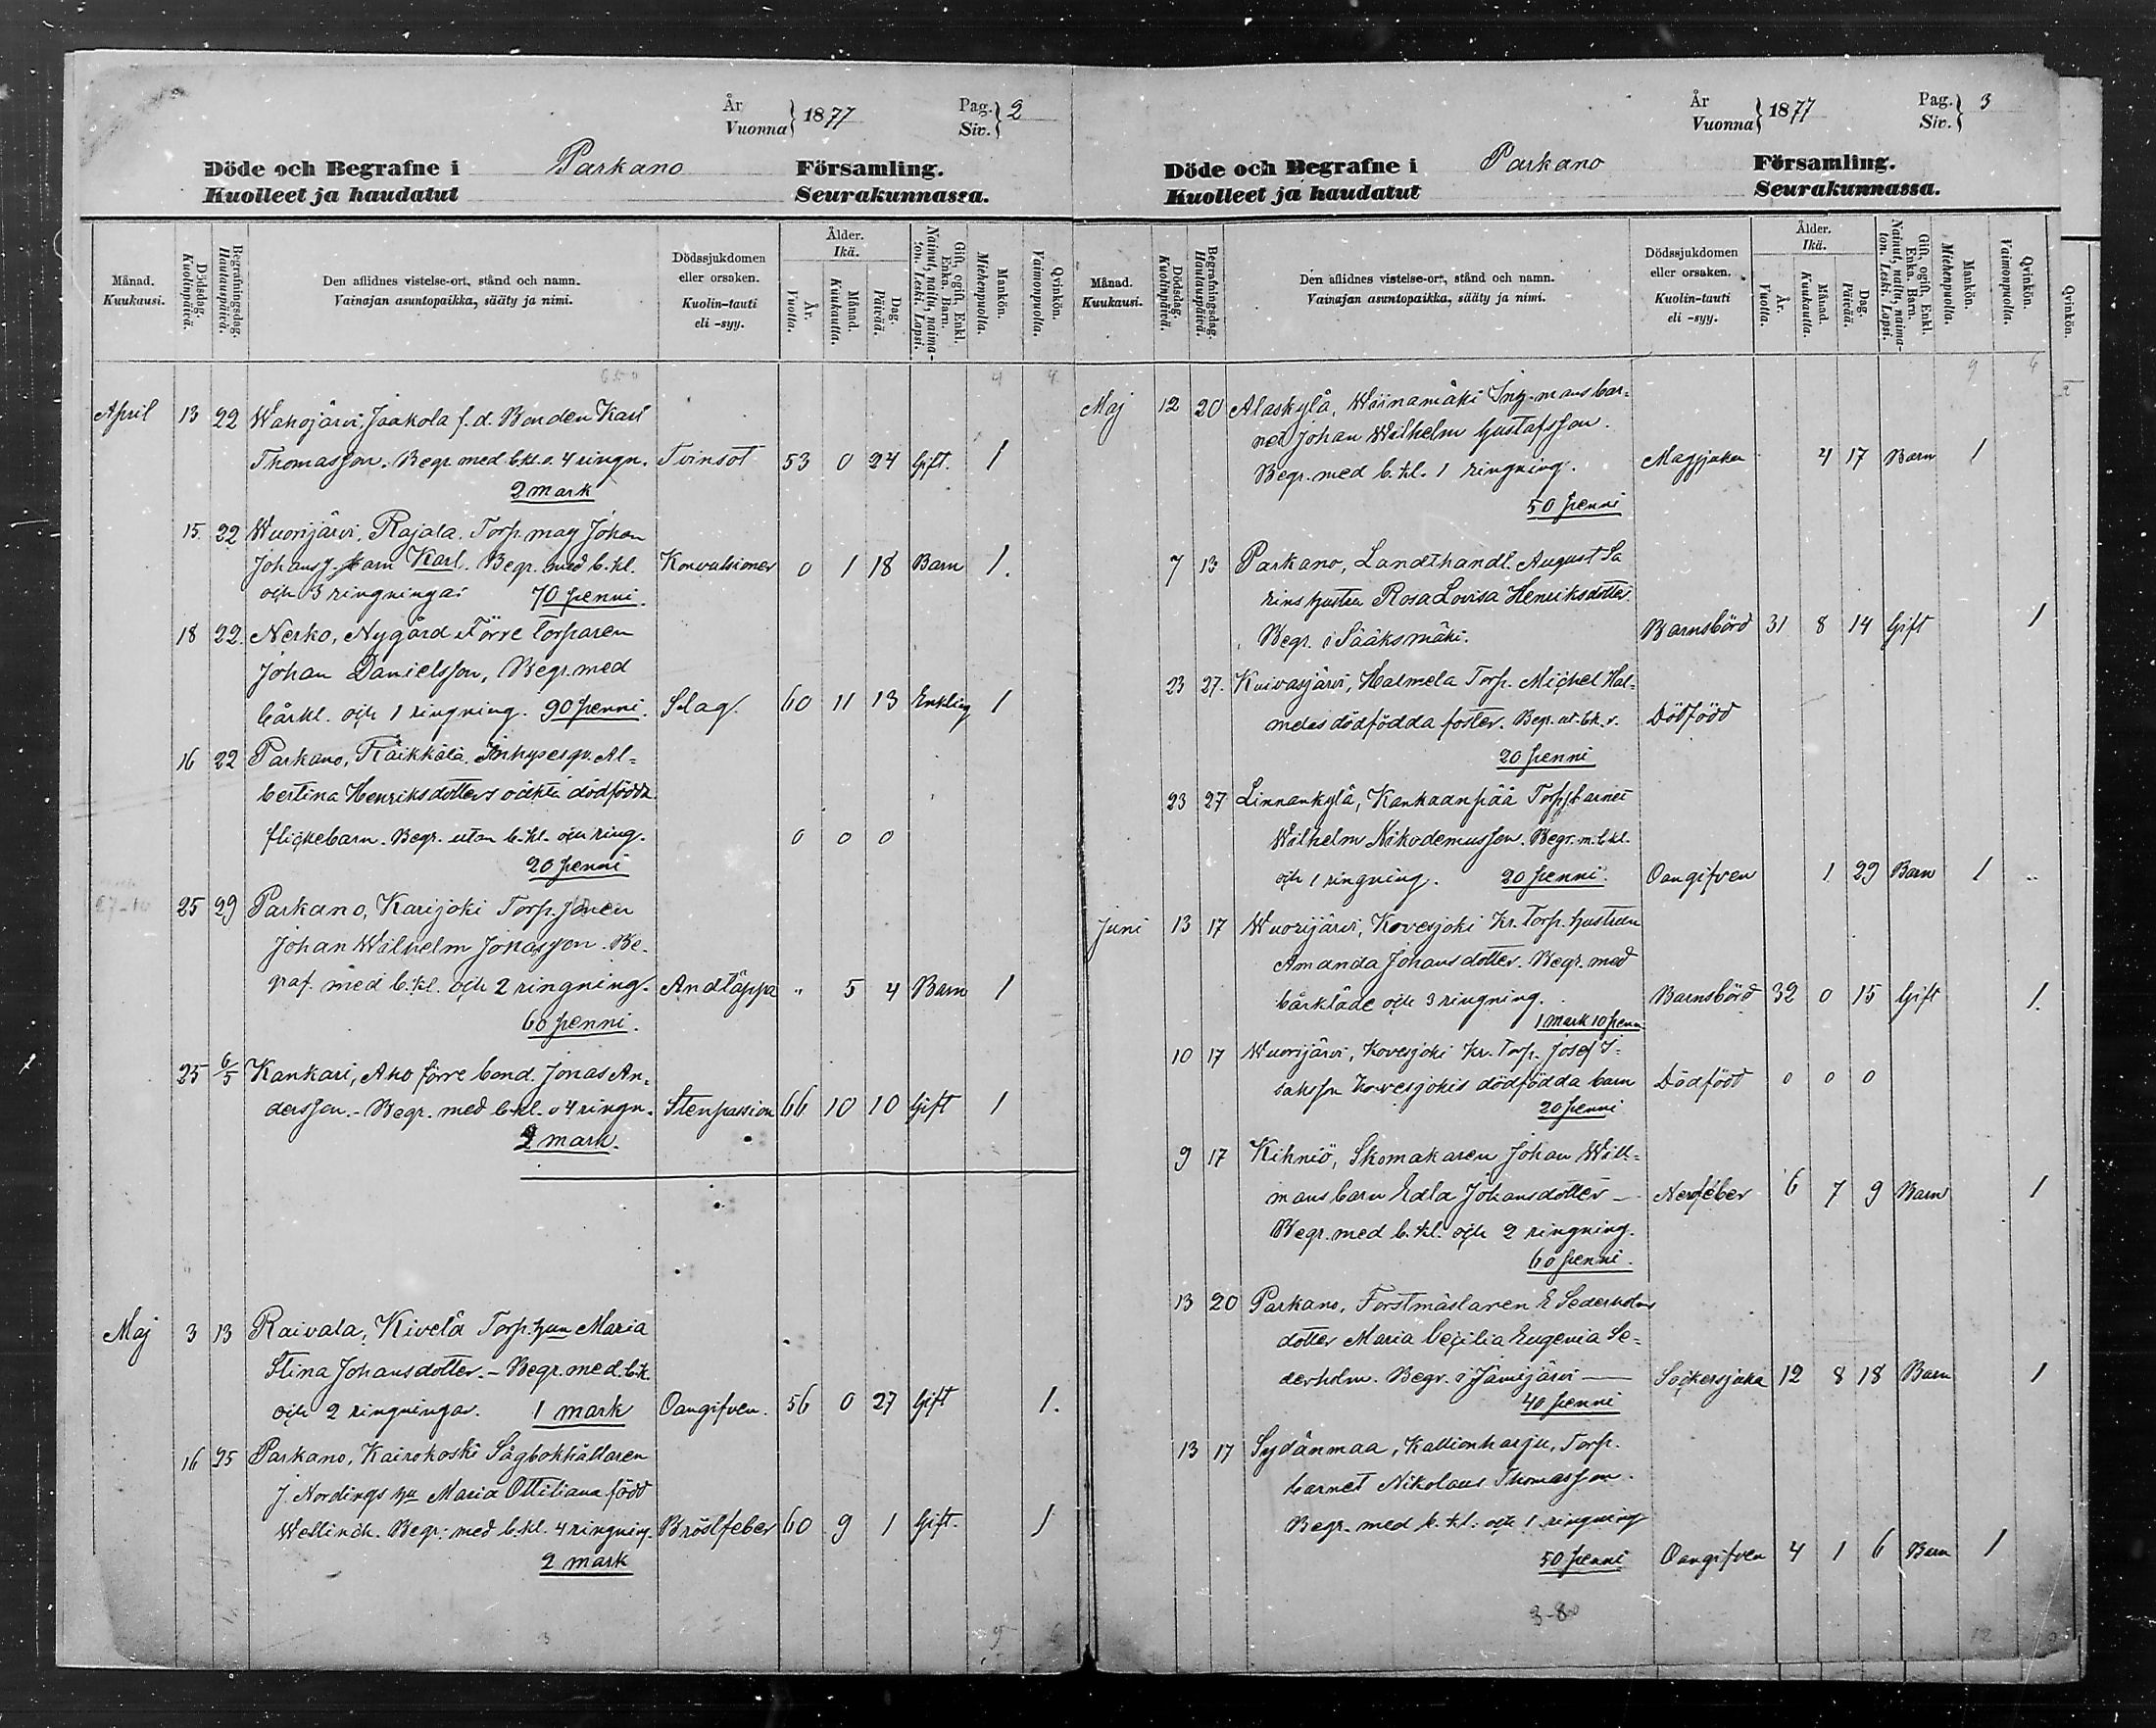 År
Vuonna } 1877
Pag.
Siv. } 2
Döde och Begrafne i Parkano Församling.
Kuolleet ja haudatut Seurakunnassa.
Månad.
Kuukausi.
Dödsdag.
Kuolinpäivä.
Begrafningsdag.
Hautauspäivä.
Den aflidnes vistelse-ort, stånd och namn.
Vainajan asuntopaikka, sääty ja nimi.
Dödssjukdomen
eller orsaken.
Kuolin-tauti
eli -syy.
Ålder.
Ikä.
År.
Vuotta.
Månad.
Kuukautta.
Dag.
Päivää.
Gift, ogift, Enkl.
Enka. Barn.
Nainut, naitu, naima-
ton. Leski. Lapsi.
Mankön.
Miehenpuolia.
Qvinkön.
Vaimonpuolia.
4 4
April 13 22 Wahojärvi, Jaakola f. d. Bonden Karl
Thomasson. Begr. med bkl. o. 4 ringn. Tvinsot 53 0 24 Gift. 1
2 mark
15 22 Wuorijärvi, Rajala. Torp. mag Johan
Johans. barn Karl. Begr. med b. kl. Konvulsioner 0 1 18 Barn 1.
och 3 ringningar 70 penni.
18 22. Nerko, Nygård Förre Torparen
Johan Danielsson, Begr. med
bårkl. och 1 ringning. 90 penni. Slag. 60 11 13 Enkling 1
16 22 Parkano, Räikkälä. Inhysesqv. Al-
bertina Henriksdotters oäkta dödfödda
flickebarn. Begr. utan b. kl. och ring. 0 0 0
20 penni
25 29 Parkano, Karijoki Torp. sonen
Johan Wilhelm Jonasson. Be-
graf. med b. kl. och 2 ringning. Andtäppa " 5 4 Barn 1
60 penni.
25 6/5 Kankari, Aho förre bond. Jonas An-
dersson. - Begr. med bkl. o 4 ringn. Stenpassion 66 10 10 Gift 1
2 mark.
Maj 3 13 Raivala, Kivelä Torp. hun Maria
Stina Johansdotter. - Begr. med. bk.
och 2 ringningar. 1 mark Oangifven. 56 0 27 Gift 1.
16 25 Parkano, Kairokoski Sågbokhållaren
J. Nordings hu Maria Ottiliana född
Wellinck. Begr. med bkl. 4 ringning. Bröstfeber 60 9 1 Gift. 1
2 mark
År
Vuonna } 1877
Pag.
Siv. } 3
Döde och Begrafne i Parkano Församling.
Kuolleet ja haudatut Seurakunnassa.
Månad.
Kuukausi.
Dödsdag.
Kuolinpäivä.
Begrafningsdag.
Hautauspäivä.
Den aflidnes vistelse-ort, stånd och namn.
Vainajan asuntopaikka, sääty ja nimi.
Dödssjukdomen
eller orsaken.
Kuolin-tauti
eli -syy.
Ålder.
Ikä.
År.
Vuotta.
Månad.
Kuukautta.
Dag.
Päivää.
Gift, ogift, Enkl.
Enka. Barn.
Nainut, naitu, naima-
ton. Leski. Lapsi.
Mankön.
Miehenpuolia.
Qvinkön.
Vaimonpuolia.
Qvinkön.
9 6
Maj 12 20 Alaskylä, Wiinamäki Inh-mans bar-
net Johan Wilhelm Gustafsson.
Begr. med b. kl. 1 ringning. Magsjuka 4 17 Barn 1
50 penni
7 13 Parkano, Landthandl. August Sa
rins hustru Rosa Lovisa Henriksdotter.
Begr. i Sääksmäki. Barnsbörd 31 8 14 Gift 1
23 27. Kuivasjärvi, Halmela Torp. Michel Hal-
melas dödfödda foster. Begr. ut. bk. o. Dödfödd
20 penni
23 27 Linnankylä, Kankaanpää Torp. barnet
Wilhelm Nikodemusson. Begr. m. bkl.
och 1 ringning. 20 penni. Oangifven 1 29 Barn 1
Juni 13 17 Wuorijärvi, Kovesjoki Kr. Torp. hustrun
Amanda Johansdotter. Begr. med
bårkläde och 3 ringning. Barnsbörd 32 0 15 Gift 1.
1 mark 10 penni
10 17 Wuorijärvi, Kovesjoki Kr. Torp. Josef I-
saksson Kovesjokis dödfödda barn Dödfödd 0 0 0
20 penni
9 17 Kihniö, Skomakaren Johan Will-
mans barn Edla Johansdotter - Nerffeber 6 7 9 Barn 1
Begr. med b. kl. och 2 ringning.
60 penni.
13 20 Parkano, Forstmästaren E Sederholms
dotter Maria Cecilia Eugenia Se-
derholm. Begr. i Jämijärvi - Sockersjuka 12 8 18 Barn 1
40 penni
13 17 Sydänmaa, Kallionharju, Torp.
barnet Nikolaus Thomasson.
Begr. med b. kl. och 1 ringning
50 penni Oangifven 4 1 6 Barn 1
3-80
12